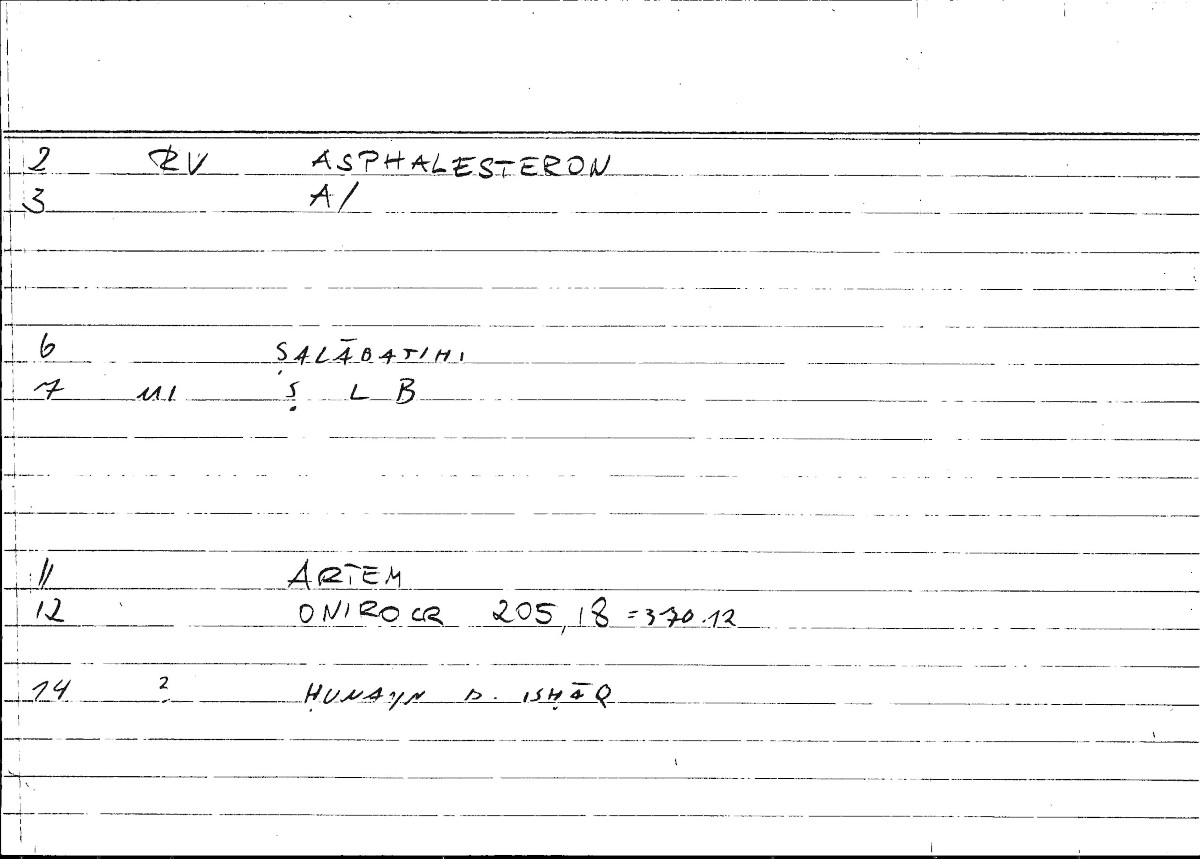 2 RV ASPHALESTERON
3 A/
6 ṢALĀBATIHI
7 M1 Ṣ L B
11 ARTEM
12 ONIROCR 205,18 =370.12
14 2 ḤUNAYN B. ISḤĀQ